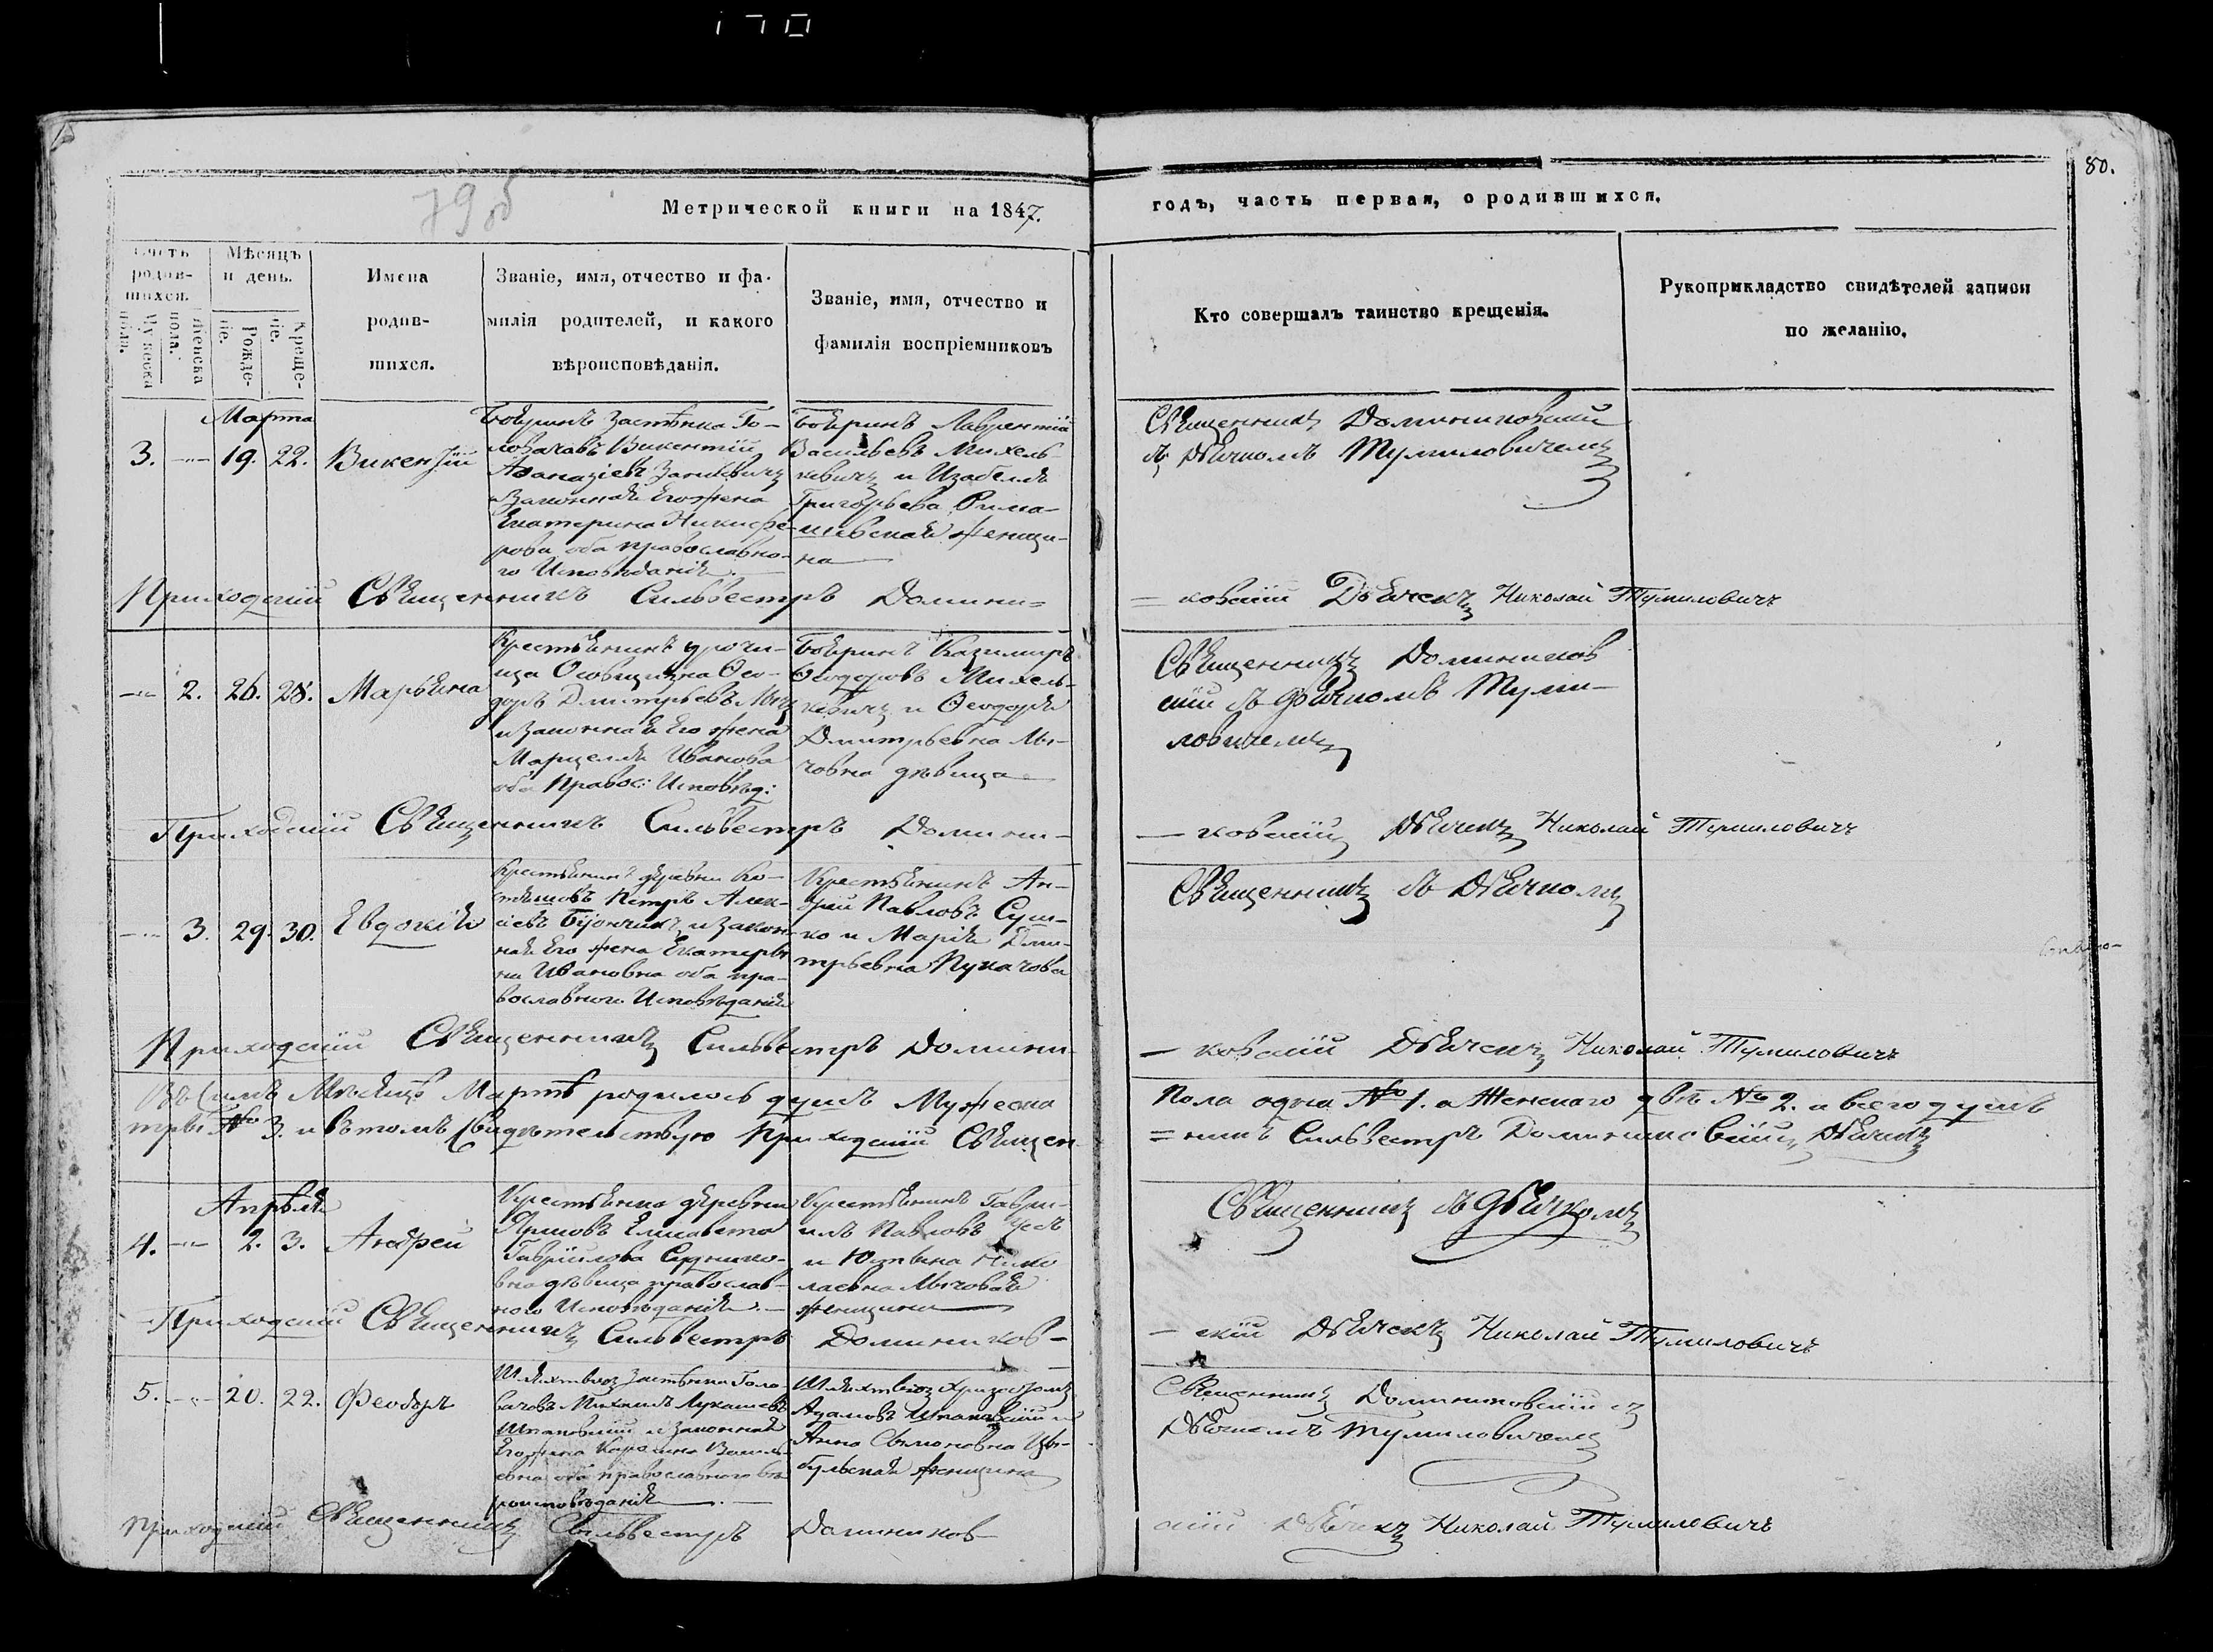 170
80.
79об
Метрической книги на 1847.
годъ, часть первая, о родившихся.
Счетъ родив-шихся.
Мужеска пола.
Женска пола.
Мѣсяцъ и день.
Рожде-ніе.
Креще-ніе.
Имена родив-шихся.
Званіе, имя, отчество и фа-
милія родителей, и какого
вѣроисповѣданія.
Званіе, имя, отчество и
фамилія воспріемниковъ
Кто совершалъ таинство крещенія.
Рукоприкладство свидѣтелей записи
по желанію.
Марта
3. 19. 22. Викентій
Бояринъ Застѣнка Го-
ловачовъ Викентій
Афаназіевъ
Законная Его жена
Екатерина Никифо-
рова оба православна-
го Исповѣданія.
Бояринъ Лаврентій
Васильевъ Михель-
кевичъ и Изабеля
Григорьева Рима-
шевская женщи-
на
Священникъ Доминиковскій
съ Дьячкомъ Тумиловичемъ
Приходскій Священникъ Сильвестръ Домини=
= ковскій Дьячекъ Николай Тумиловичъ
2. 26. 28. Марьяна
Крестьянинъ урочи-
ща Осовщизна Ѳео-
доръ Дмитрьевъ Мычъ
и законная Его жена
Марцеля Иванова
оба Правос: Исповѣд:
Бояринъ Казимиръ
Ѳеодоровъ Михель-
кевичъ и Ѳеодора
Дмитрьевна Мы-
човна дѣвица
Священникъ Домиников
скій съ Дьячкомъ Туми-
ловичемъ
Приходскій Священникъ Сильвестръ Домини-
- ковскій Дьячекъ Николай Тумиловичъ
3. 29. 30. Евдокія
Крестьянинъ деревни Ко-
Петръ Алек-
сіевъ и закон-
ная Его жена Екатери
на Ивановна оба пра-
вославного Исповѣданія
Крестьянинъ Ан-
дрей Павловъ Суш-
ко и Марія Дми-
трьевна Пукачова
Священникъ съ Дьячкомъ
Приходскій Священникъ Сильвестръ Домини-
- ковскій Дьячекъ Николай Тумиловичъ
Въ Семъ Мѣсяцѣ Мартѣ родилось душъ Мужеска
Пола одна № 1. а Женскаго двѣ № 2. а всего душъ
три № 3. и въ томъ Свидѣтельствую Приходскій Священ-
= никъ Сильвестръ Доминиковскій, Дьячекъ
Апрѣля
4. 2. 3. Андрей
Крестьянка деревни
Елисавета
Гавріилова
вна дѣвица православ-
ного Исповѣданія.
Крестьянинъ Гаври-
илъ Павловъ Усъ
и Юзѣина Нико
лаевна Мычовая
женщина
Священникъ съ Дьячкомъ
Приходскій Священникъ Сильвестръ Домиников-
- скій Дьячекъ Николай Тумиловичъ
5. 20. 22. Феодоръ
Шляхтичъ Застѣнка Голо-
вачовъ Михаилъ Лукашевъ
Шпаковскій и Законная
Его жена Каролина Василь-
евна оба православнаго вѣ
роисповѣданія
Шляхтичъ Хризостомъ
Адамовъ Шпаковскій и
Анна Симоновна Цы-
бульская женщина
Священникъ Доминиковскій съ
Дьячкомъ Тумиловичемъ
Приходскій Священникъ Сильвестръ Домиников-
скій Дьячекъ Николай Тумиловичъ